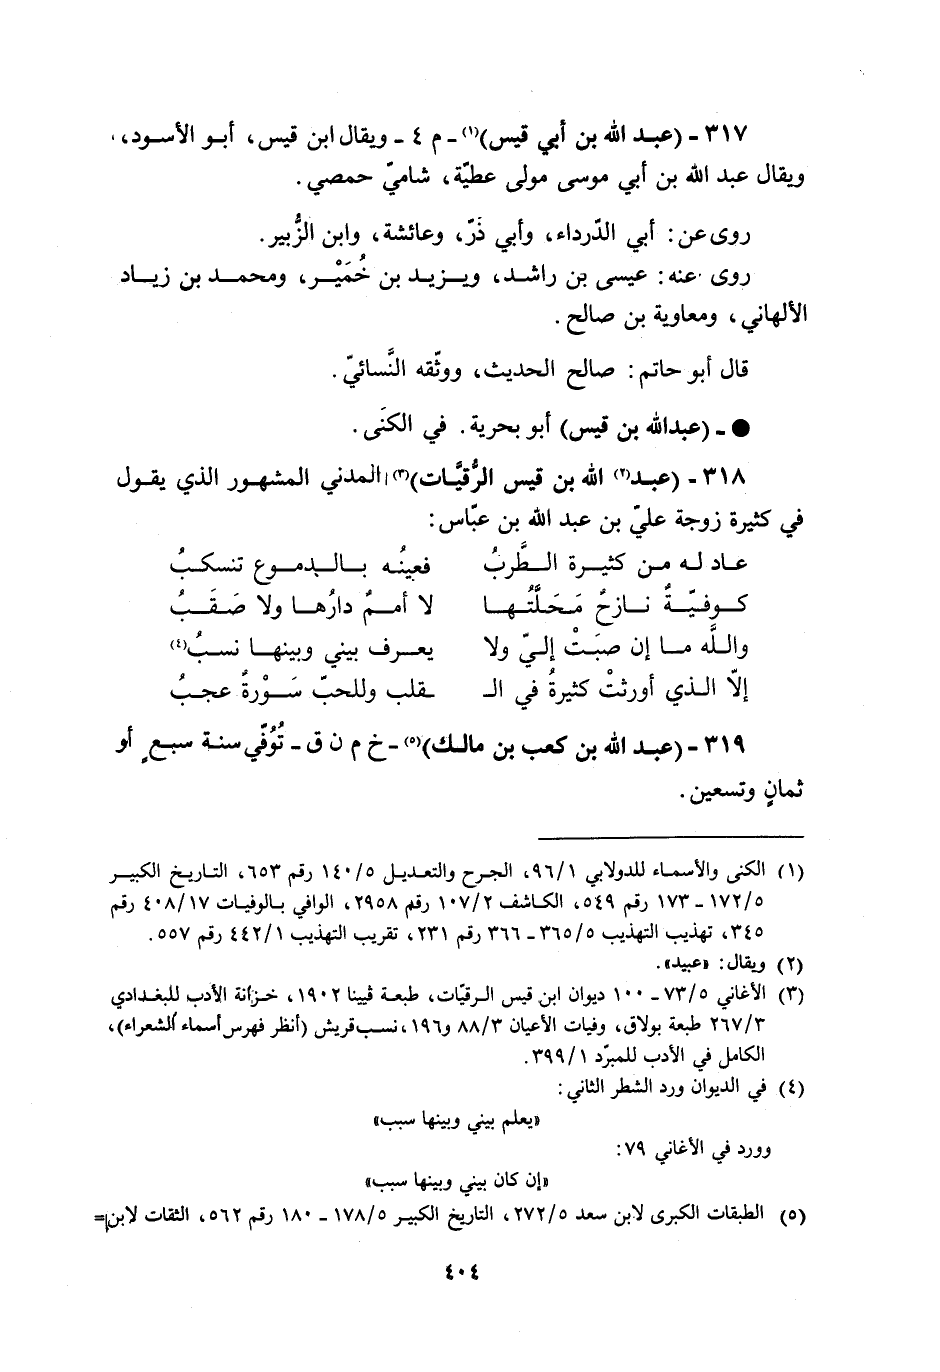 ٣١٧ - (عبد الله بن أبي قيس)(١) - م ٤ - ويقال ابن قيس، أبو الأسود،
ويقال عبد الله بن أبي موسى مولى عطيّة، شاميّ حمصي.
روى عن: أبي الدّرداء، وأبي ذَرّ، وعائشة، وابن الزُّبير.
روى عنه: عيسى بن راشد، ويزيد بن خُمَيْر، ومحمد بن زياد
الألهاني، ومعاوية بن صالح.
قال أبو حاتم: صالح الحديث، ووثّقه النَّسائيّ.
● - (عبدالله بن قيس) أبو بحرية. في الكنَى.
٣١٨ - (عبد(٢) الله بن قيس الرُّقيَّات)(٣) المدني المشهور الذي يقول
في كثيرة زوجة عليّ بن عبد الله بن عبّاس:
عاد له من كثيرة الطَّربُ فعينُه بالدموع تنسكبُ
كوفيّةُ نازحُ مَحَلَّتُها لا أممُ دارُها ولا صَقَبُ
واللَّه ما إن صبَتْ إليّ ولا يعرف بيني وبينها نسبُ(٤)
إلّا الذي أورثتْ كثيرةُ في الـ ـقلب وللحبّ سَوْرةُ عجبُ
٣١٩ - (عبد الله بن كعب بن مالك)(٥) - خ م ن ق - تُوُفّي سنة سبعٍ أو
ثمانٍ وتسعين.
(١) الكنى والأسماء للدولابي ٩٦/١، الجرح والتعديل ١٤٠/٥ رقم ٦٥٣، التاريخ الكبير
١٧٢/٥ - ١٧٣ رقم ٥٤٩، الكاشف ١٠٧/٢ رقم ٢٩٥٨، الوافي بالوفيات ٤٠٨/١٧ رقم
٣٤٥، تهذيب التهذيب ٣٦٥/٥ - ٣٦٦ رقم ٢٣١، تقريب التهذيب ٤٤٢/١ رقم ٥٥٧.
(٢) ويقال: «عبيد».
(٣) الأغاني ٧٣/٥ - ١٠٠ ديوان ابن قيس الرقيّات، طبعة ڤيينا ١٩٠٢، خزانة الأدب للبغدادي
٢٦٧/٣ طبعة بولاق، وفيات الأعيان ٨٨/٣ و١٩٦، نسب قريش (أنظر فهرس أسماء الشعراء)،
الكامل في الأدب للمبرّد ٣٩٩/١.
(٤) في الديوان ورد الشطر الثاني:
«يعلم بيني وبينها سبب»
وورد في الأغاني ٧٩:
«إن كان بيني وبينها سبب»
(٥) الطبقات الكبرى لابن سعد ٢٧٢/٥، التاريخ الكبير ١٧٨/٥ - ١٨٠ رقم ٥٦٢، الثقات لابن=
٤٠٤